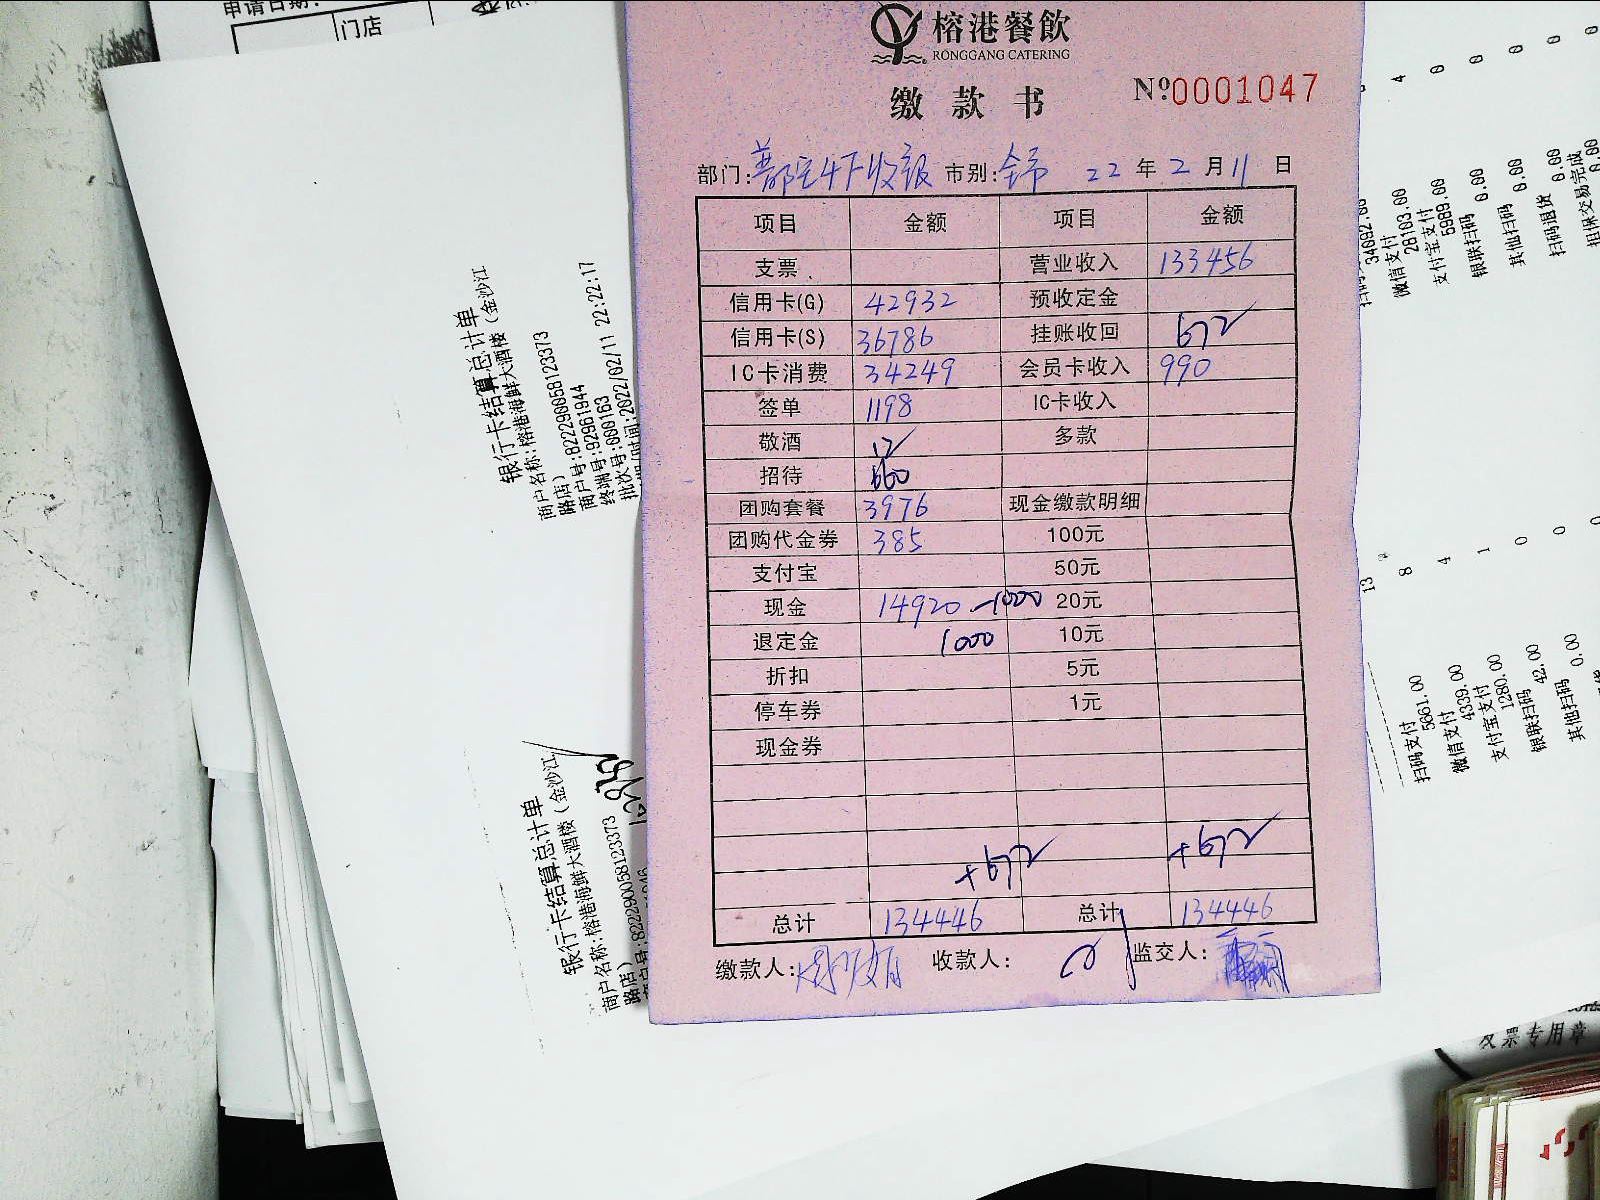 申请日期:
门店
榕港餐飲
RONGGANG CATERING
缴款书
№0001047
部门: 市别:全市 22年2月11日
项目 金额 项目 金额
支票 营业收入 133456
信用卡(G) 42932 预收定金
信用卡(S) 36786 挂账收回 672
IC卡消费 34249 会员卡收入 990
签单 1198 IC卡收入
敬酒 多款
招待
团购套餐 3976 现金缴款明细
团购代金券 385 100元
支付宝 50元
现金 14920-1000 20元
退定金 1000 10元
折扣 5元
停车券 1元
现金券
+672 +672
总计 134446 总计 134446
缴款人: 收款人: 监交人:
银行卡结算总计单
商户名称:榕港海鲜大酒楼(金沙江
路店)
商户号:822290058123373
终端号:92961944
批次号:000163
时间:2022/02/11 22:22:17
银行卡结算总计单
商户名称:榕港海鲜大酒楼(金沙江
路店)
商户号:822290058123373
4 0 0 0 0 0
34092.00
微信支付
28103.00
支付宝支付
5989.00
银联扫码
0.00
其他扫码
0.00
扫码退货
0.00
担保交易完成
0.00
13 8 4 1 0 0
扫码支付
5661.00
微信支付
4339.00
支付宝支付
1280.00
银联扫码
42.00
其他扫码
0.00
发票专用章